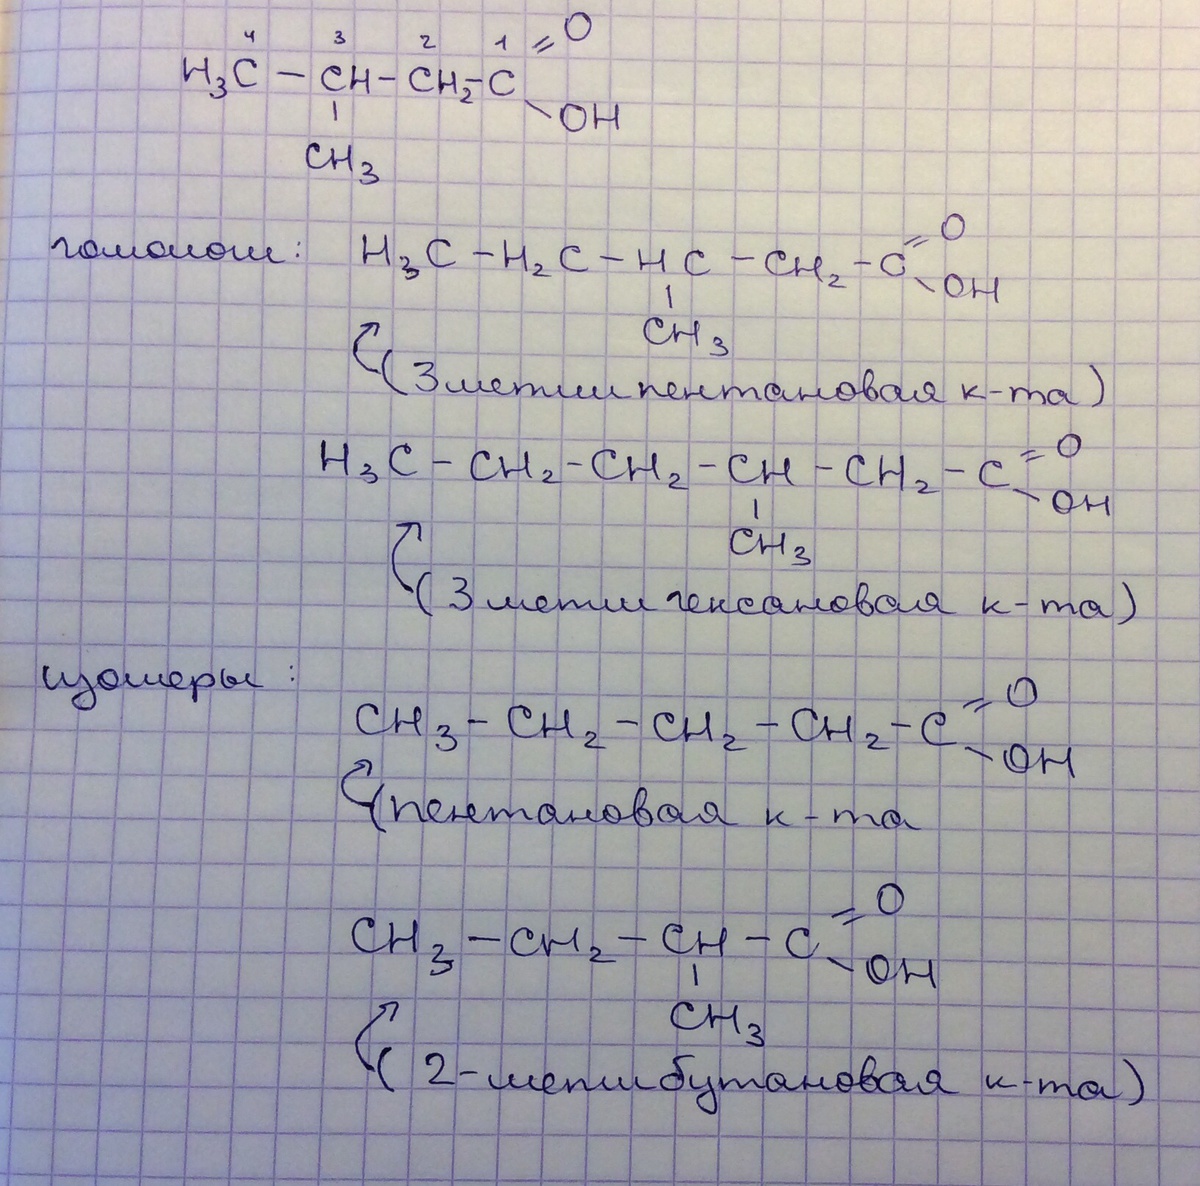 4 3 2 1 =O
H₃C – CH – CH₂ – C
– OH
CH₃
гомологи: H₃C – H₂C – HC – CH₂ – C =O
– OH
CH₃
(3 метилпентановая к-та)
H₃C – CH₂ – CH₂ – CH – CH₂ – C =O
– OH
CH₃
(3 метилгексановая к-та)
изомеры:
CH₃ – CH₂ – CH₂ – CH₂ – C =O
– OH
(пентановая к-та
CH₃ – CH₂ – CH – C =O
– OH
CH₃
(2-метилбутановая к-та)